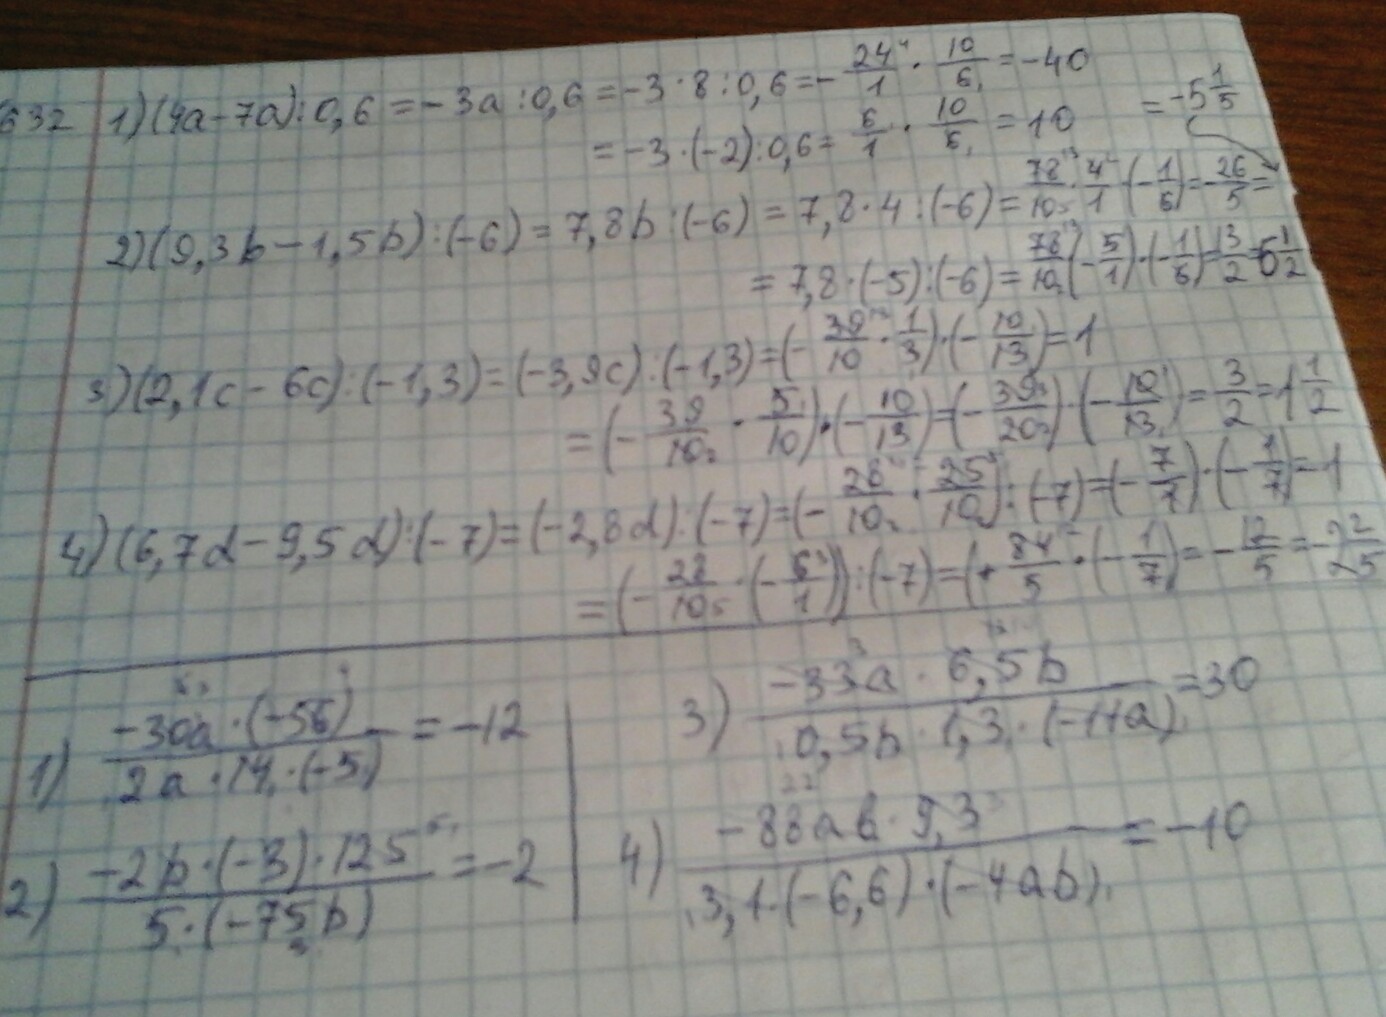 632 1) (4a-7a):0,6 = -3a:0,6 = -3·8:0,6 = -24/1 · 10/6 = -40
= -3·(-2):0,6 = 6/1 · 10/6 = 10
= -5 1/5
2) (9,3b-1,5b):(-6) = 7,8b:(-6) = 7,8·4:(-6) = 78/10 · 4/1 · (-1/6) = -26/5 =
= 7,8·(-5):(-6) = 78/10 (-5/1)·(-1/6) = 13/2 = 6 1/2
3) (2,1c-6c):(-1,3) = (-3,9c):(-1,3) = (-39/10 · 1/3)·(-10/13) = 1
= (-39/10 · 5/10)·(-10/13) = (-39/20)·(-10/13) = 3/2 = 1 1/2
4) (6,7d-9,5d):(-7) = (-2,8d):(-7) = (-28/10 · 25/10):(-7) = (-7/1)·(-1/7) = 1
= (-28/10 · (-6/1)):(-7) = (+84/5 · (-1/7) = -12/5 = -2 2/25
1) -30a·(-56) / 2a·14·(-5) = -12
2) -2b·(-3)·125 / 5·(-75b) = -2
3) -33a·6,5b / 0,5b·1,3·(-11a) = 30
4) -88ab·9,3 / 3,1·(-6,6)·(-4ab) = -10